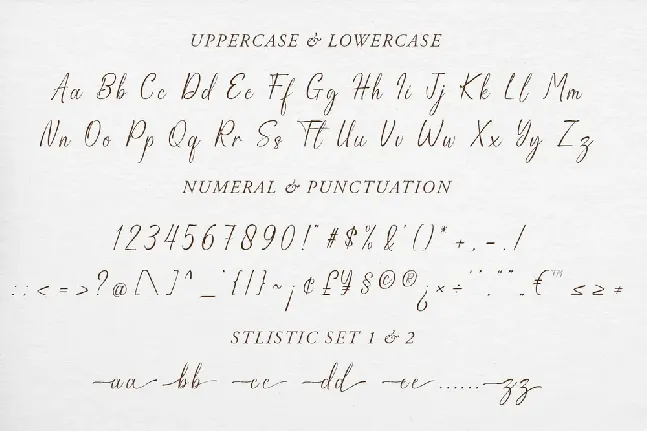 UPPERCASE & LOWERCASE
Aa Bb Cc Dd Ee Ff Gg Hh Ii Jj Kk Ll Mm
Nn Oo Pp Qq Rr Ss Tt Uu Vv Ww Xx Yy Zz
NUMERAL & PUNCTUATION
1234567890!"#$%&'()*+,-./
:;<=>?@[\]^_`{|}~¡¢£¥§©®¿×÷‘’‚“”„€™≤≥≠
STLISTIC SET 1 & 2
aa bb cc dd ee......zz